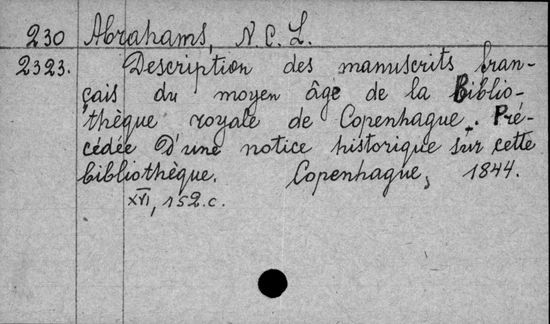 230 Abrahams, N. C. L.
2323. Description des manuscrits fran-
çais du moyen âge de la Biblio-
thèque royale de Copenhague. Pré-
cédée d'une notice historique sur cette
bibliothèque. Copenhague, 1844.
XVI, 152 c.